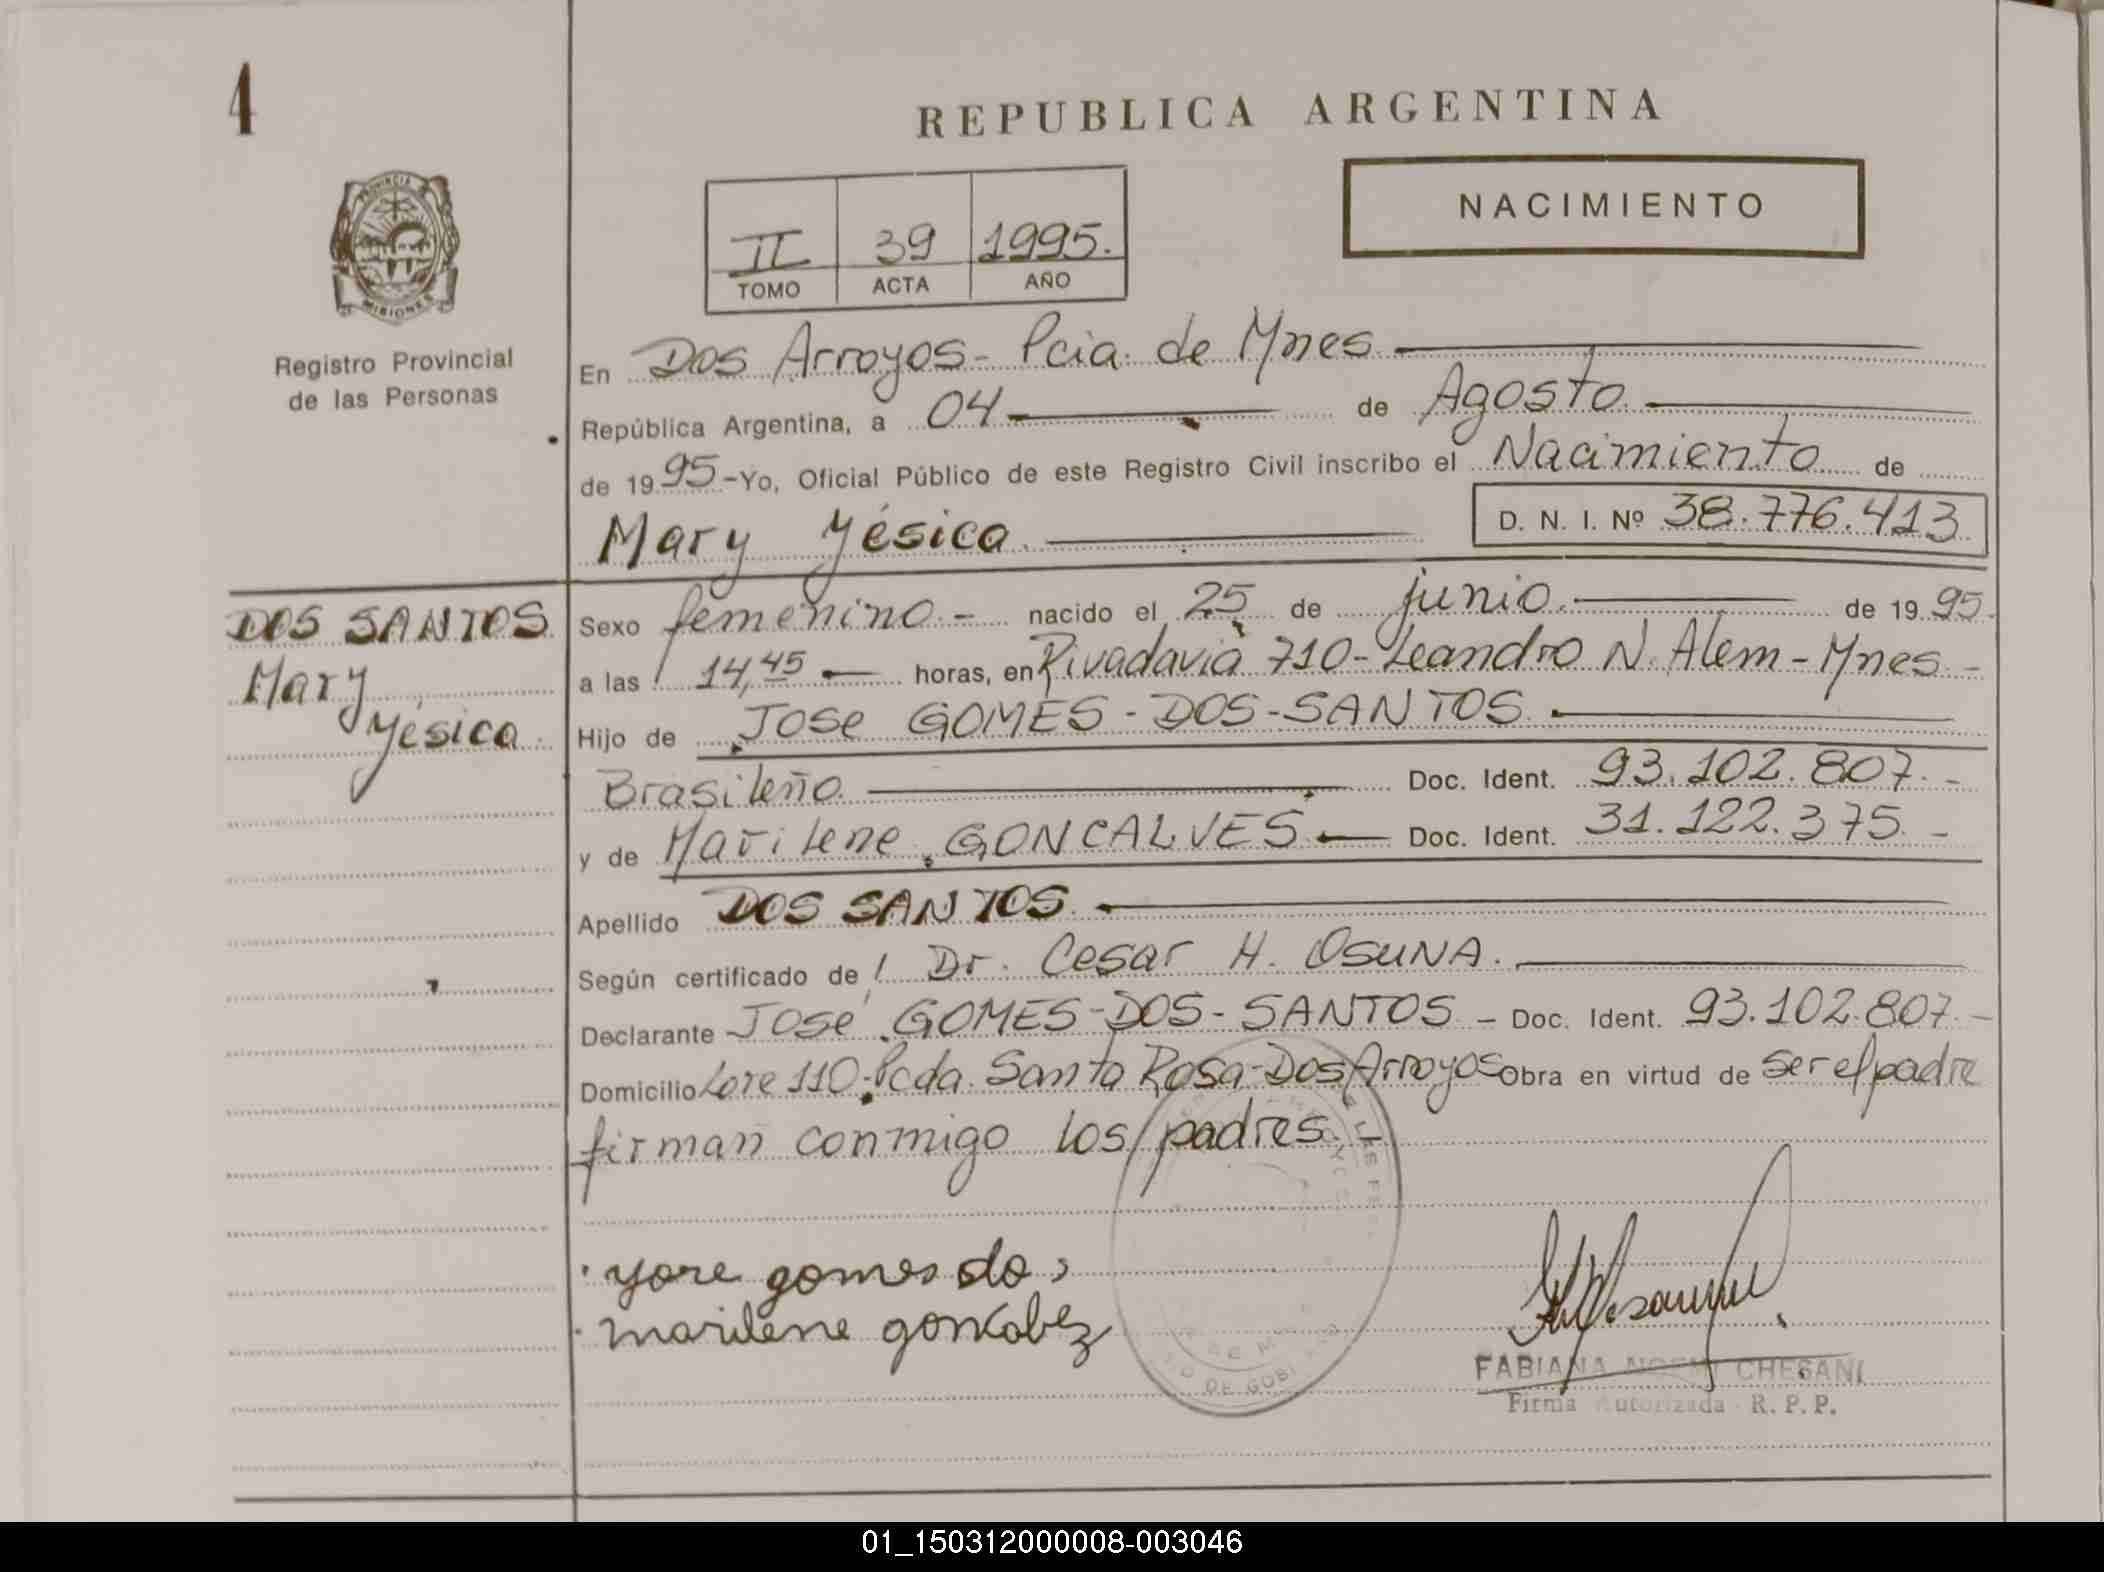 4
REPUBLICA ARGENTINA
NACIMIENTO
PROVINCIA
MISIONES
II 39 1995.
TOMO ACTA AÑO
Registro Provincial
de las Personas
En Dos Arroyos - Pcia. de Mnes
República Argentina, a 04 de Agosto
de 1995 - Yo, Oficial Público de este Registro Civil inscribo el Nacimiento de
Mary Yésica. D. N. I. Nº 38.776.413
DOS SANTOS
Mary
Yésica
Sexo femenino. - nacido el 25 de junio. de 1995.
a las 14,45 horas, en Rivadavia 710 - Leandro N. Alem - Mnes -
Hijo de José GOMES - DOS - SANTOS.
Brasileño. Doc. Ident. 93.102.807. -
y de Marilene GONCALVES Doc. Ident. 31.122.375. -
Apellido DOS SANTOS.
Según certificado de Dr. Cesar H. OSUNA.
Declarante José GOMES - DOS - SANTOS - Doc. Ident. 93.102.807. -
Domicilio Lote 110 - Pcda. Santa Rosa - Dos Arroyos Obra en virtud de ser el padre
firman conmigo los padres. -
yore gomes do s
marilene goncalvez
FABIANA NOEMI CHESANI
Firma Autorizada R. P. P.
01_150312000008-003046